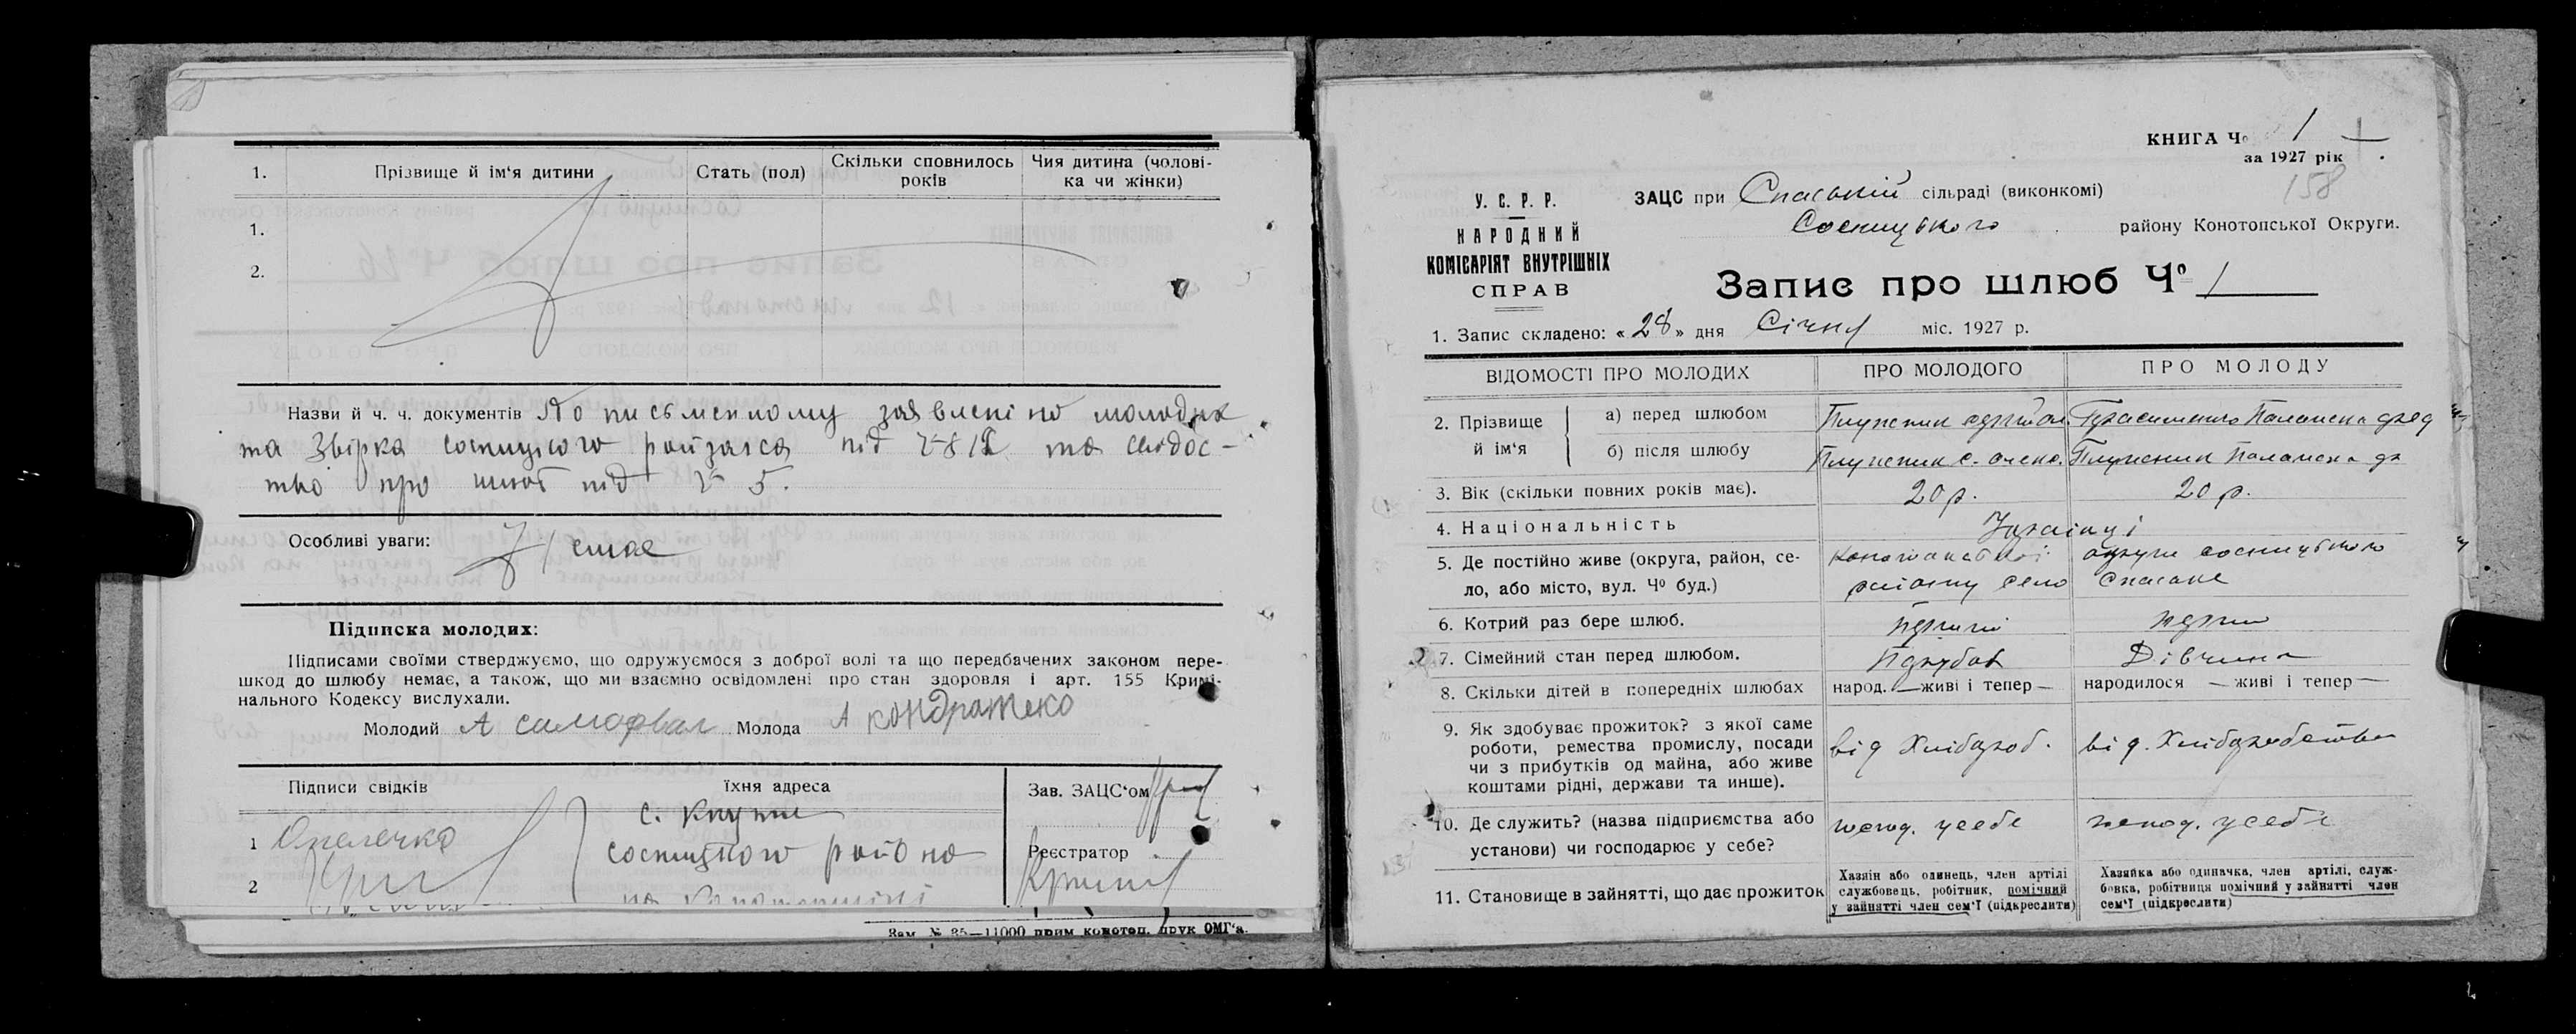 1. Прізвище й ім'я дитини Стать (пол) Скільки сповнилось років Чия дитина (чолові-
ка чи жінки)
1.
2.
Назви й ч. ч. документів По письменному заявлені но молодих
та Звірка сосницкого райзагса під № 812 та свідос-
тво про шлюб під № 5.
Особливі уваги: немає
Підписка молодих:
Підписами своїми стверджуємо, що одружуємося з доброї волі та що передбачених законом пере-
шкод до шлюбу немає, а також, що ми взаємно освідомлені про стан здоровля і арт. 155 Кримі-
нального Кодексу вислухали.
Молодий А самофал Молода А кондратеко
Підписи свідків Їхня адреса Зав. ЗАЦС'ом
1 с. Кнути
сосницкого району Реєстратор
2 на Конотопщині
Зам. № 35—11000 прим конотоп. друк ОМГ'а.
КНИГА Ч° 1
за 1927 рік
158
У. С. Р. Р.
НАРОДНИЙ
КОМІСАРІЯТ ВНУТРІШНІХ
СПРАВ
ЗАЦС при Спаській сільраді (виконкомі)
Сосницького району Конотопської Округи.
Запис про шлюб Ч° 1
1. Запис складено: «28» дня Січня міс. 1927 р.
ВІДОМОСТІ ПРО МОЛОДИХ ПРО МОЛОДОГО ПРО МОЛОДУ
2. Прізвище й ім'я
а) перед шлюбом Плужник Герасименко Палажка
б) після шлюбу Плужник Плужник Палажка
3. Вік (скільки повних років має). 20 р. 20 р.
4. Національність Українці
5. Де постійно живе (округа, район, се- Конотопської округи сосницького
ло, або місто, вул. Ч° буд.) району село Спаське
6. Котрий раз бере шлюб. перший перши
7. Сімейний стан перед шлюбом. Парубок Дівчина
8. Скільки дітей в попередніх шлюбах народ. — живі і тепер — народилося — живі і тепер —
9. Як здобуває прожиток? з якої саме
роботи, ремества промислу, посади
чи з прибутків од майна, або живе
коштами рідні, держави та инше).
від Хлібороб. від. Хліборобства
10. Де служить? (назва підприємства або
установи) чи господарює у себе?
господ. у себе господ. у себе
11. Становище в зайнятті, що дає прожиток
Хазяін або одинець, член артілі
службовець, робітник, помічний
у зайнятті член сем'ї (підкреслити)
Хазяйка або одиначка, член артілі, служ-
бовка, робітниця помічний у зайнятті член
сем'ї (підкреслити)